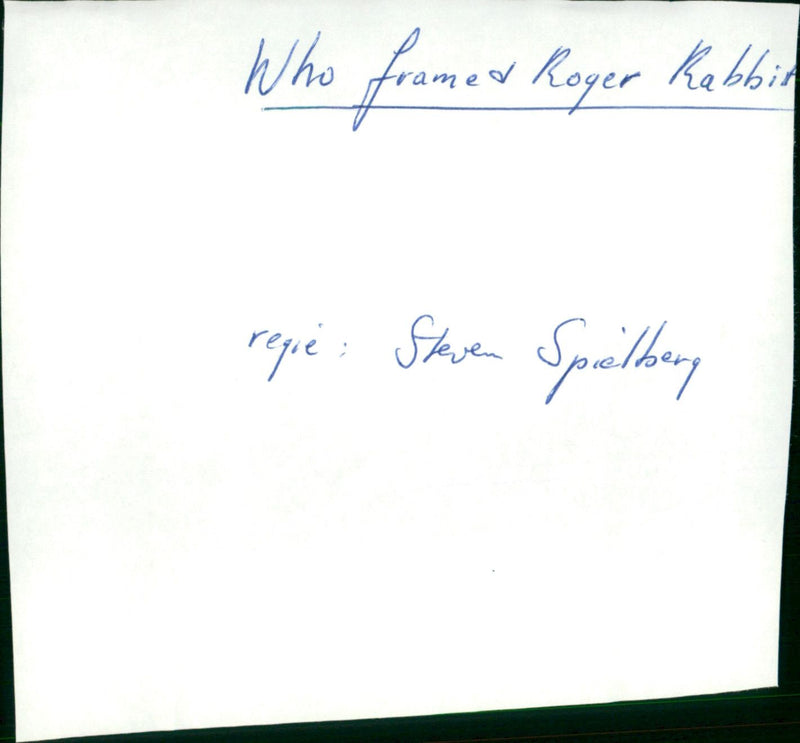 Who framed Roger Rabbit
regie: Steven Spielberg